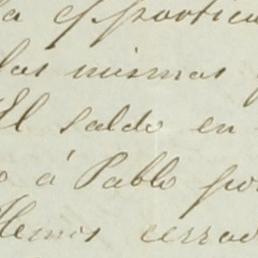 las mismas
El saldo en
á Pablo por
Hemos cerrad